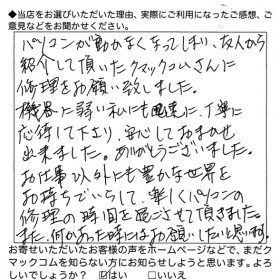 ◆当店をお選びいただいた理由、実際にご利用になったご感想、ご
意見などをお聞かせください。
パソコンが動かなくなってしまい、友人から
紹介して頂いたクマックコムさんに
修理をお願い致しました。
機器に弱い私にも 丁寧に
応待して下さり、安心しておまかせ
出来ました。ありがとうございました。
お仕事以外にも豊かな世界を
お持ちでいらして、楽しくパソコンの
修理の時間を過ごさせて頂きました。
また、何かあった時にはお願いしたいと思います。
お寄せいただいたお客様の声をホームページなどで、まだク
マックコムを知らない方にお知らせしようと思います。よろ
しいでしょうか？ ☑はい □いいえ